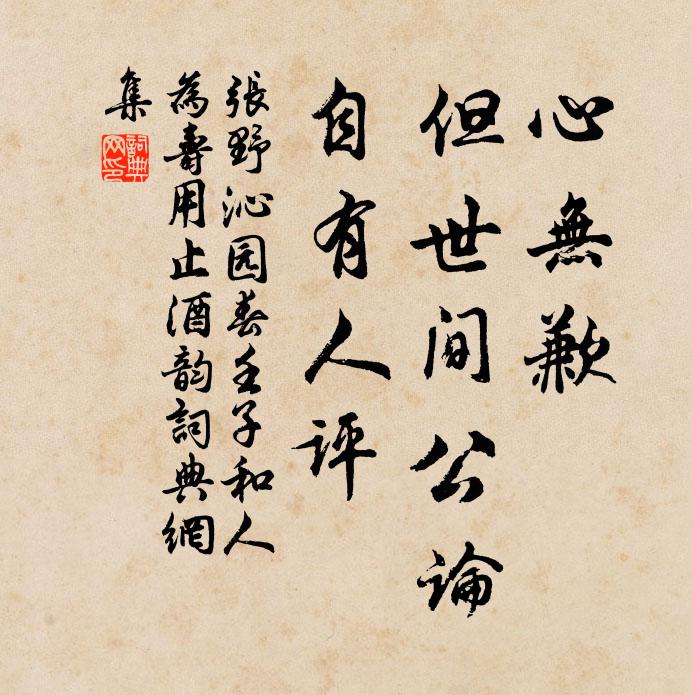 心無歉
但世间公論
自有人评
張野沁园春壬子和人
為壽用止酒韵詞典網
集
詞典網印